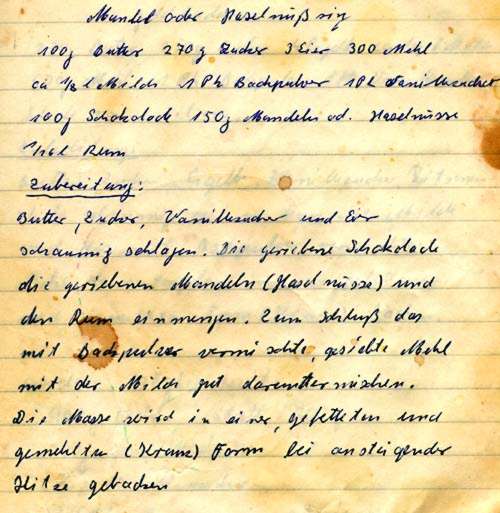 Mandel oder Haselnußring
100g Butter 270g Zucker 3 Eier 300 Mehl
ca 1/8 l Milch 1 Pk Backpulver 1 Pk Vanillezucker
100g Schokolade 150g Mandeln od. Haselnüsse
1/16 l Rum
Zubereitung:
Butter, Zucker, Vanillezucker und Eier
schaumig schlagen. Die geriebene Schokolade
die geriebenen Mandeln (Haselnüsse) und
den Rum einmengen. Zum Schluß das
mit Backpulver vermischte, gesiebte Mehl
mit der Milch gut daruntermischen.
Die Masse wird in einer, gefetteten und
gemehlten (Kranz) Form bei ansteigender
Hitze gebacken